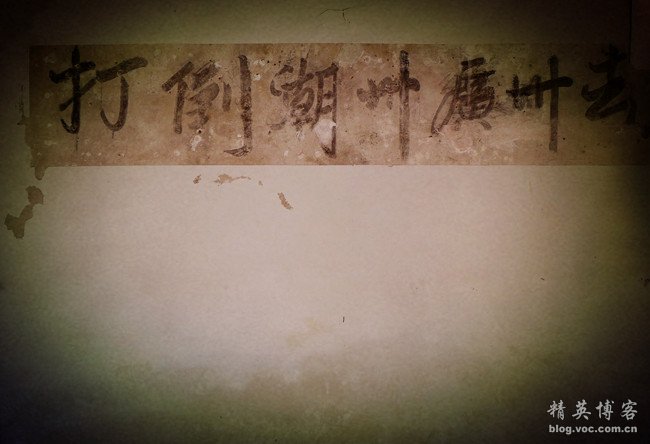 打倒潮州廣州去
精英博客
blog.voc.com.cn